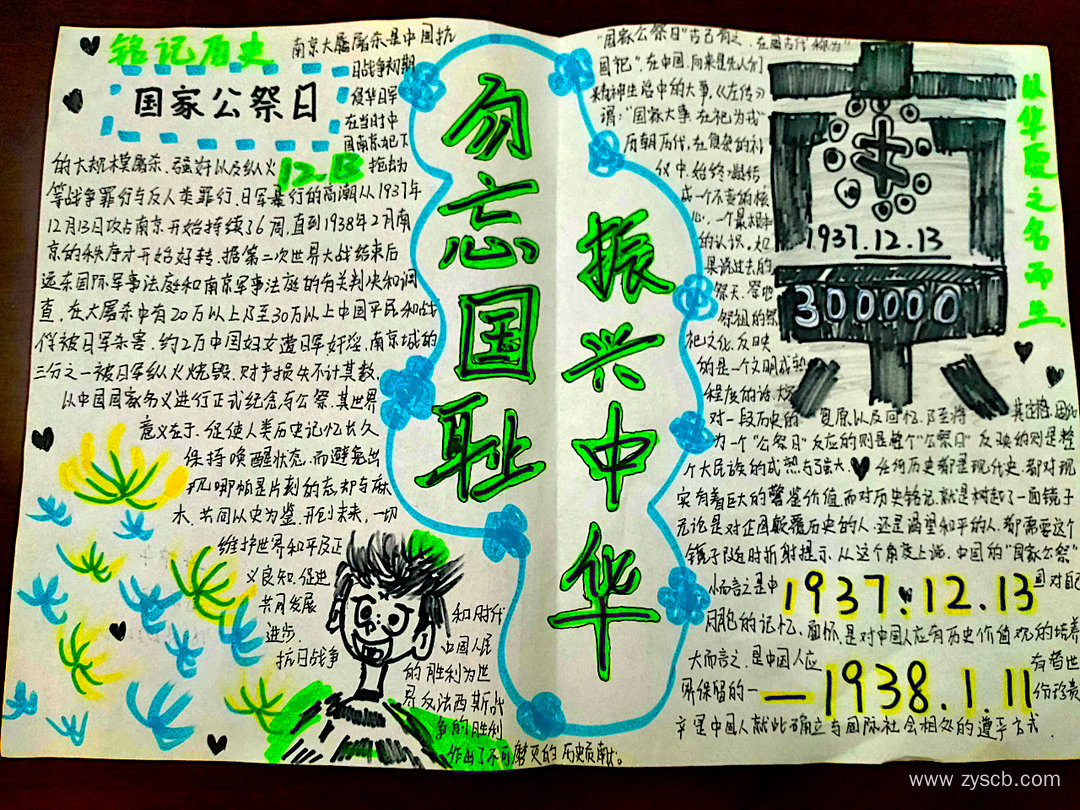 铭记历史
国家公祭日
12.13
南京大屠杀是中国抗
日战争初期
侵华日军
在当时中
国南京犯下
的大规模屠杀、强奸以及纵火
抢劫
等战争罪行与反人类罪行.日军暴行的高潮从1937年
12月13日攻占南京开始持续了6周,直到1938年2月南
京的秩序才开始好转.据第二次世界大战结束后
远东国际军事法庭和南京军事法庭的有关判决和调
查,在大屠杀中有20万以上乃至30万以上中国平民和战
俘被日军杀害,约2万中国妇女遭日军奸淫,南京城的
三分之一被日军纵火烧毁,财产损失不计其数.
从中国国家名义进行正式纪念与公祭,其世界
意义在于,促使人类历史记忆长久
保持唤醒状态,而避免出
现哪怕是片刻的忘却与麻
木,共同以史为鉴、开创未来,一切
维护世界和平及正
义良知,促进
共同发展
和时代
进步.
抗日战争
中国人民
的胜利为世
界反法西斯战
争的胜利
作出了不可磨灭的历史贡献。
勿忘国耻
振兴中华
"国家公祭日"古已有之,在国古代称为"
国祀",在中国,向来是先人们
精神生活中的大事,《左传》
谓:"国家大事,在祀为戎"
历朝历代,在复杂的礼
仪中,始终凝结
成一个不变的核
心,一个最根本
的认识,如
果说过去的
祭天、祭地
祭祖的祭
祀文化,反映
的是一个文明成熟
程度的话,
对一段历史的
复原以及回忆,乃至将
其定格,
为一个"公祭日"反应的则是整个"公祭日"反映的则是整
个大民族的成熟与强大.
任何历史都是现代史,都对现
实有着巨大的警鉴价值,而对历史铭记,就是树起了一面镜子
无论是对正图颠覆历史的人,还是渴望和平的人,都需要这个
镜子随时折射提示,从这个角度上说,中国的"国家公祭"
小而言之是中
1937.12.13
国对自己
同胞的记忆、缅怀,是对中国人应有历史价值观的培养
大而言之,是中国人应
有替世
界保留的一
—1938.1.11
份珍贵
是中国人就此确立与国际社会相处的遵平方式.
1937.12.13
300000
以华臣之名而生
www.zyscb.com